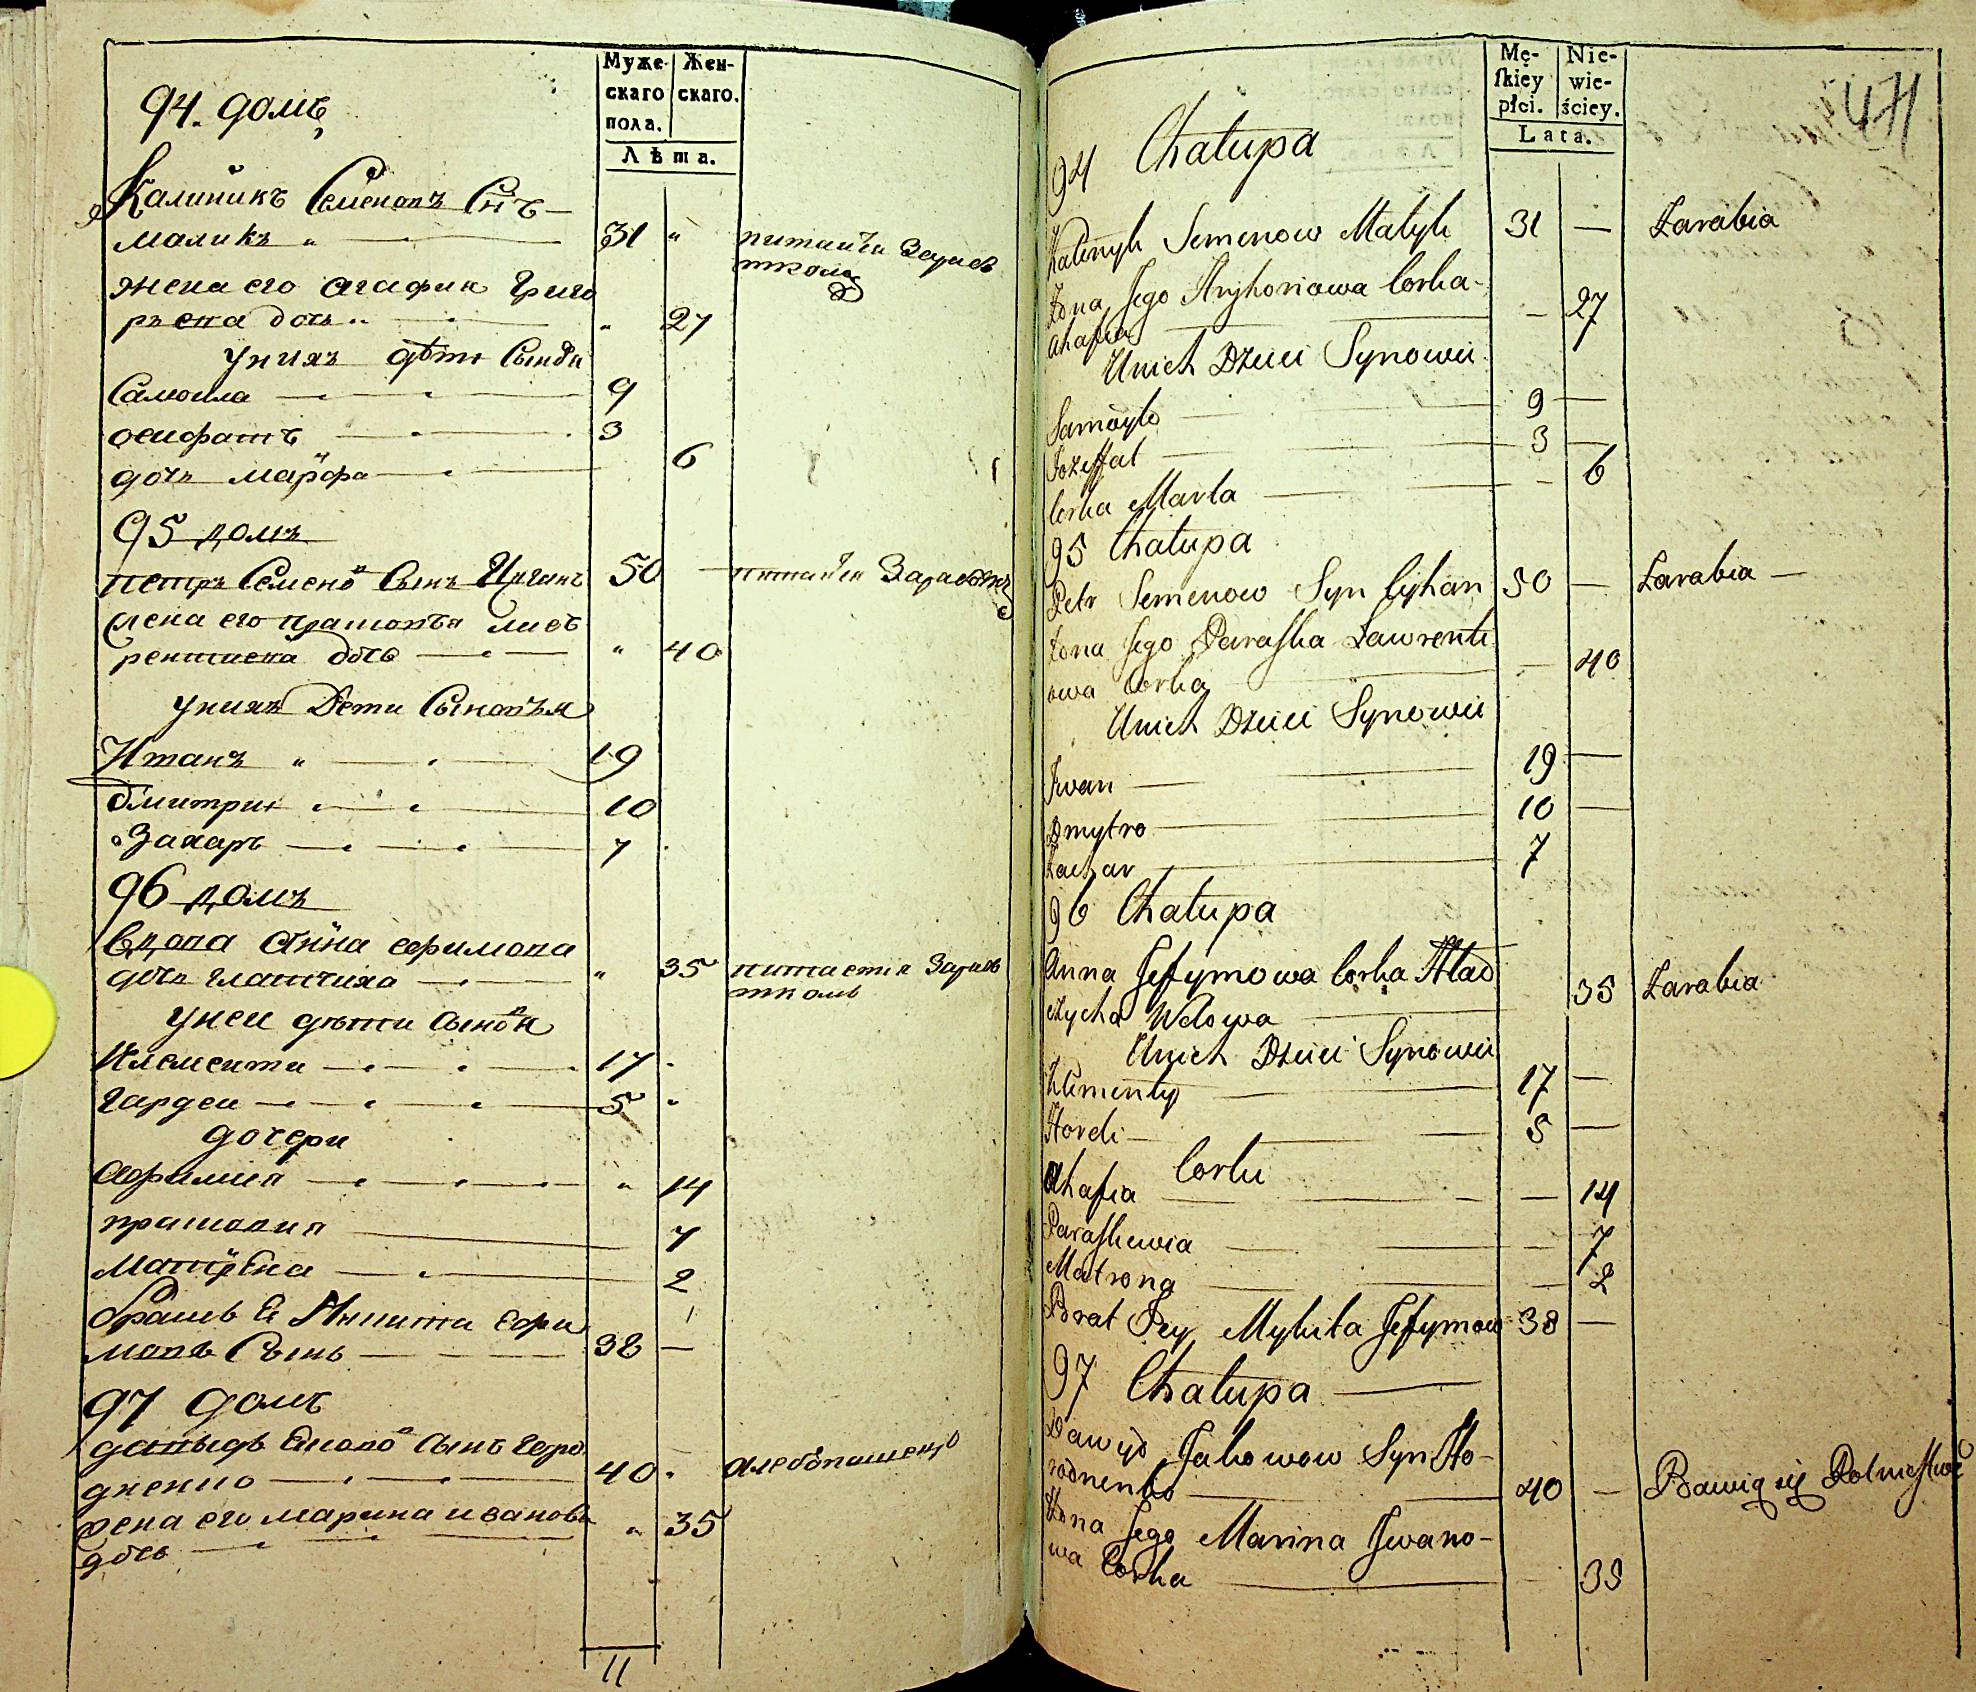 Муже- Жен-
скаго скаго.
пола.
Лѣта.
94. домъ
Калиникъ Семеновъ Снъ —
маликъ " — 31 " питаица Зараб
ткомъ
жена его агафия Григо
рьева дочь " — " 27
У нихъ дѣти Сыновя
Самоила — 9
осифатъ — 3
дочь марфа — 6
95 домъ
петръ Семено Сынъ Цыганъ 50 — питаица Заработк
жена его прасковья лав
рентиева дочь — " 40
унихъ Дети Сыновья
Иванъ " — 19
дмитрии — 10
Захаръ — 7
96 домъ
Вдова Анна ефимова
дочь глатчиха — " 35 питается Зараб
ткомъ
унеи дѣти Сынов
Клементи — 17
гардеи — 5
дочери
— " 14
прасковия — 7
Матрена — 2
братъ Ее Никита ефи
мовъ Сынъ — 38 —
97 домъ
давыдъ Сынъ Горо
дненко — 40 хлебопашец
жена его марина иванова " 35
дочь —
11
Mę- Nie-
ſkiey wie-
płci. ściey.
Lata.
471
94 Chałupa
Kalenyk Semenow Malyk 31 — Zarabia
Żona Jego Hryhoriowa Corka
Ahafia — 27
Unich Dzieci Synowie
Samoyło — 9 —
Jozeffat — 3 —
Corka Marta — 6
95 Chałupa
Petr Semenow Syn Cyhan 50 — Zarabia —
Żona Jego Paraſka Lawrenti
owa Corka — 40
Unich Dzieci Synowie
Iwan — 19 —
Dmytro — 10 —
Zachar — 7
96 Chałupa
Anna Jefymowa Corka Hlad
czycha Wdowa — 35 Zarabia
Unich Dzieci Synowie
Klimenty — 17 —
Hordi — 5 —
Corki
Ahafia — 14
Paraſkewia — 7
Matrona — 2
Brat Jey Mykita Jefymow 38 —
97 Chałupa —
Dawyd Jakowow Syn Ho-
rodnenko — 40 — Bawią się Rolnictwe
Żona Jego Marina Iwano-
wa Corka — 35